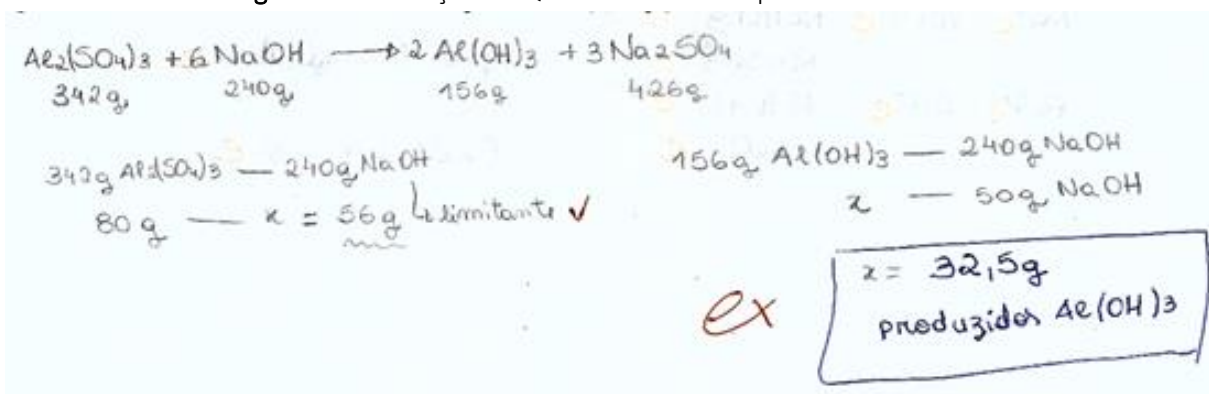 Al2(SO4)3 + 6 NaOH → 2 Al(OH)3 + 3 Na2SO4
342g 240g 156g 426g
342g Al2(SO4)3 — 240g NaOH
80 g — x = 56g ↳ limitante ✓
156g Al(OH)3 — 240g NaOH
x — 50g NaOH
x = 32,5g
produzidos Al(OH)3
ex